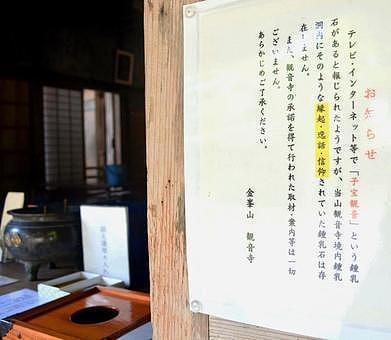 お知らせ
テレビ・インターネット等で「子宝観音」という鍾乳
石があると報じられたようですが、当山観音寺境内鍾乳
洞内にそのような縁起・逸話・信仰されていた鍾乳石は存
在しません。
また、観音寺の承諾を得て行われた取材・案内等は一切
ございません。
あらかじめご了承ください。
金峯山 観音寺